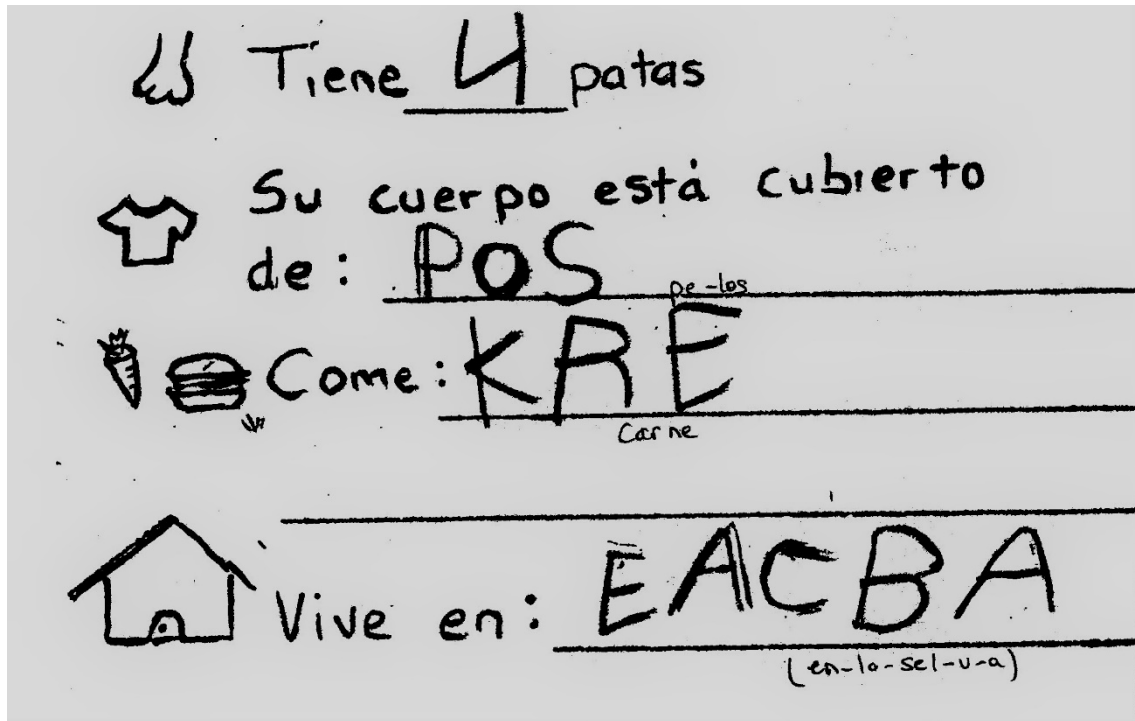 Tiene 4 patas
Su cuerpo está cubierto
de: POS
pe-los
Come: KRE
Carne
Vive en: EACBA
(en-la-sel-v-a)